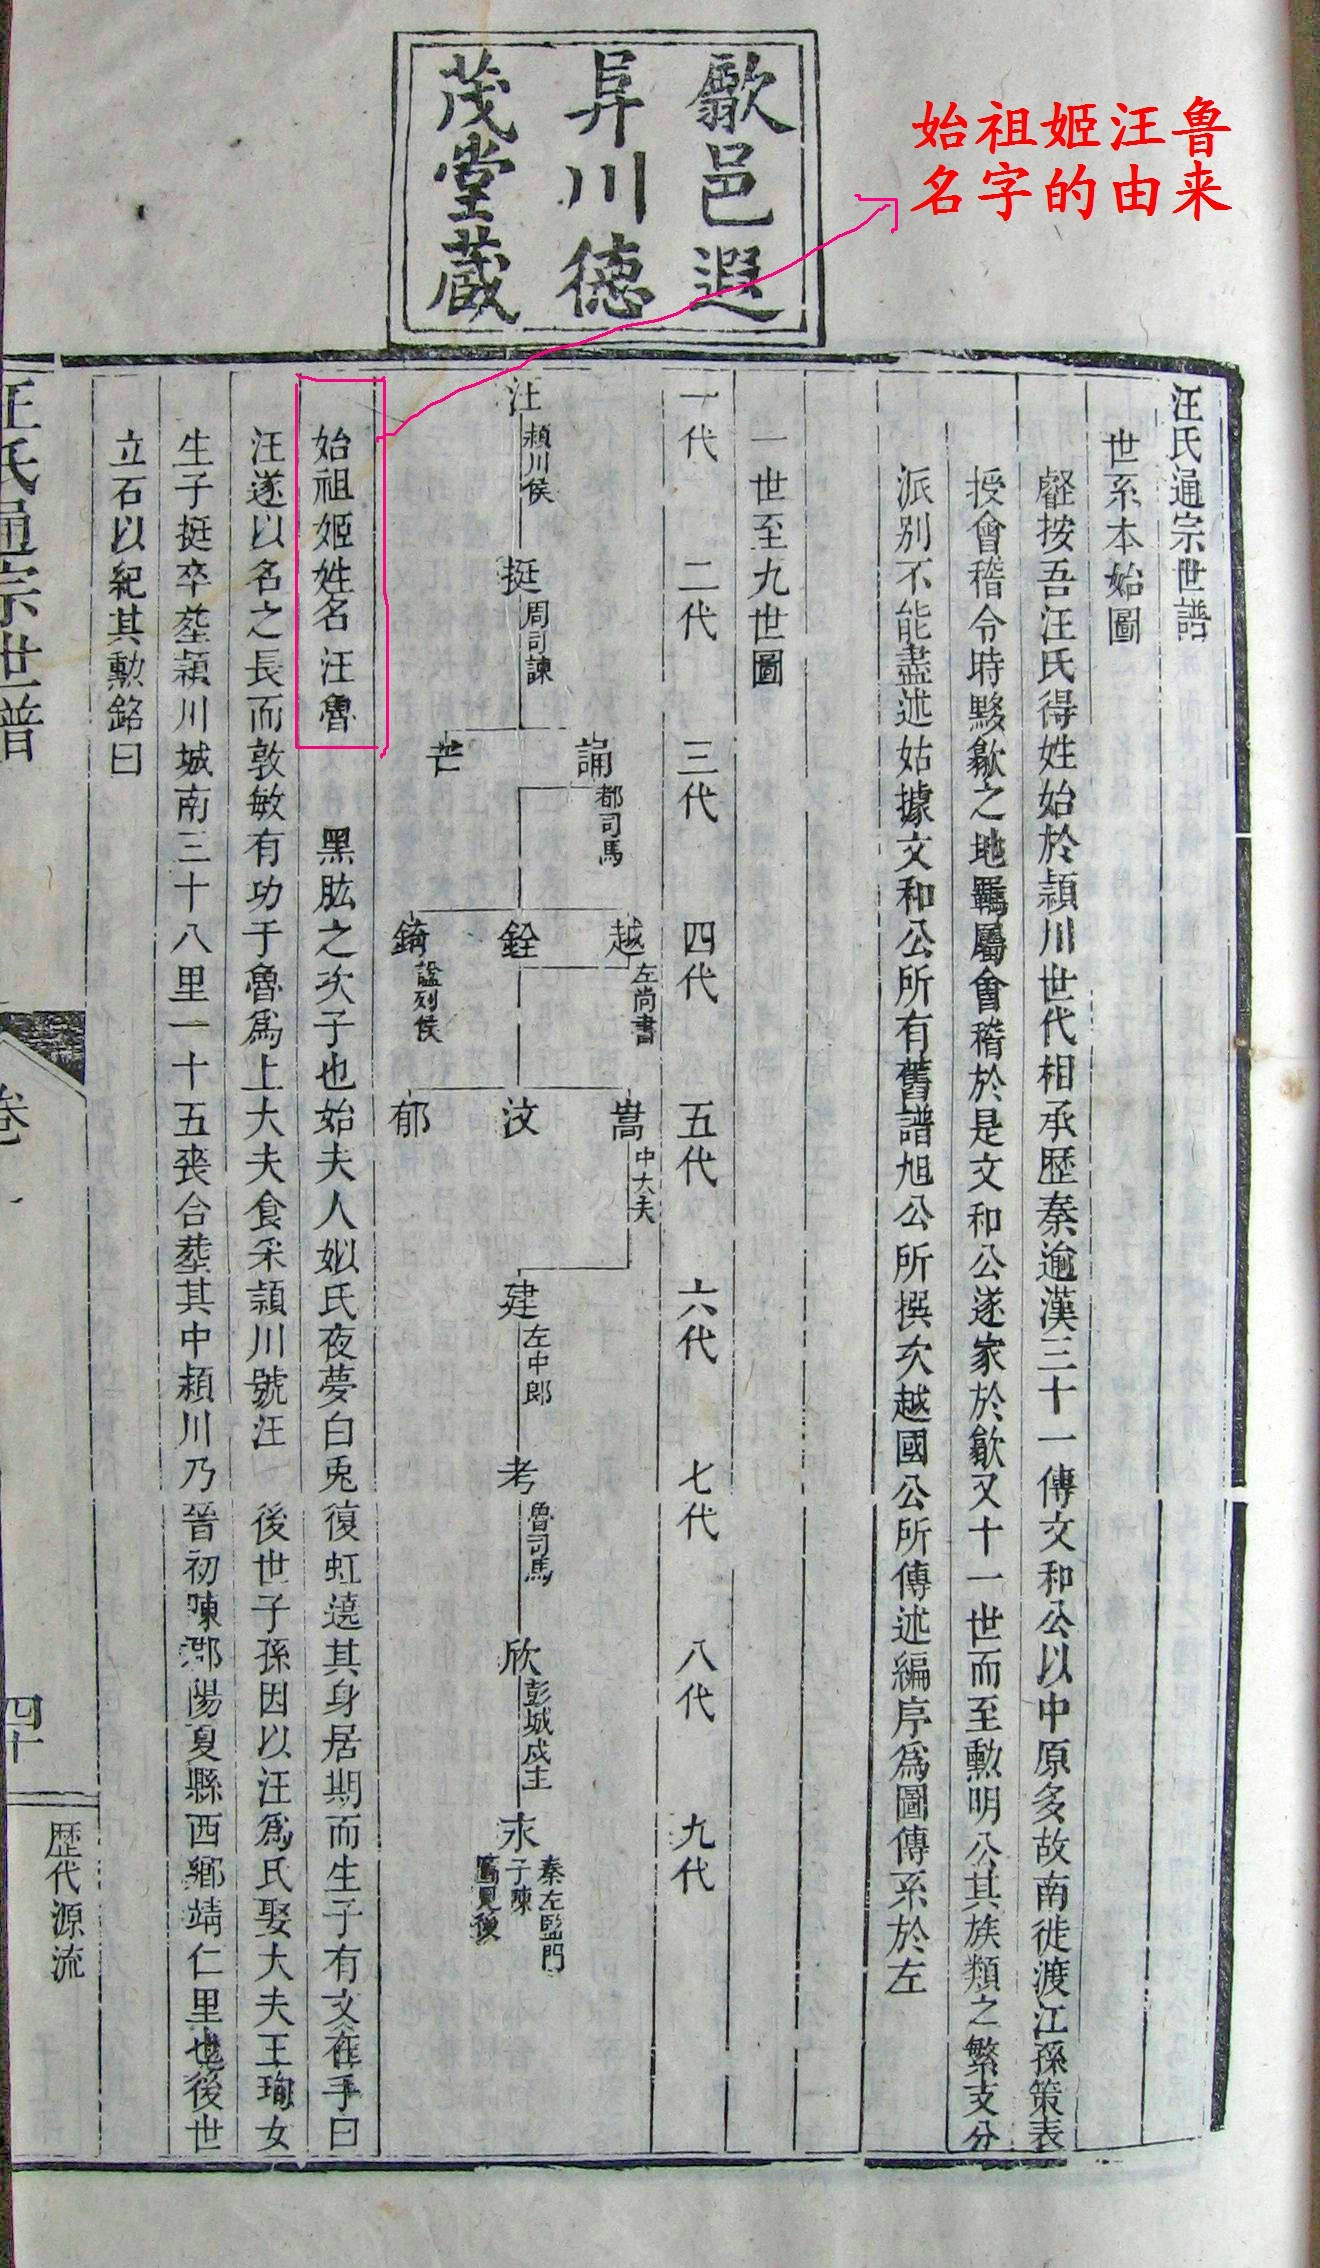 歙邑遐
昇川德
茂堂蔵
始祖姬汪鲁
名字的由来
汪氏通宗世譜
世系本始圖
叡按吾汪氏得姓始於潁川世代相承歷秦逾漢三十一傳文和公以中原多故南徙渡江孫策表
授會稽令時黟歙之地羈屬會稽於是文和公遂家於歙又十一世而至勲明公其族類之繁支分
派別不能盡述姑據文和公所有舊譜旭公所撰次越國公所傳述編序爲圖傳系於左
一世至九世圖
一代 二代 三代 四代 五代 六代 七代 八代 九代
汪 潁川侯
挺 周司諫
誦 都司馬
芒
越 左尚書
銓
錡 諡列侯
嵩 中大夫
汶
郁
建 左中郎
考 魯司馬
欣 彭城戍主
末 秦左監門
子陳
屬見後
始祖姬姓名汪魯 黑肱之次子也始夫人姒氏夜夢白兎復虹遶其身居期而生子有文在手曰
汪遂以名之長而敦敏有功于魯爲上大夫食采潁川號汪 後世子孫因以汪爲氏娶大夫王珣女
生子挺卒塟潁川城南三十八里一十五丧合塟其中潁川乃晉初陳郡陽夏縣西鄉靖仁里也後世
立石以紀其勲銘曰
汪氏通宗世譜
卷一
四十
歷代源流